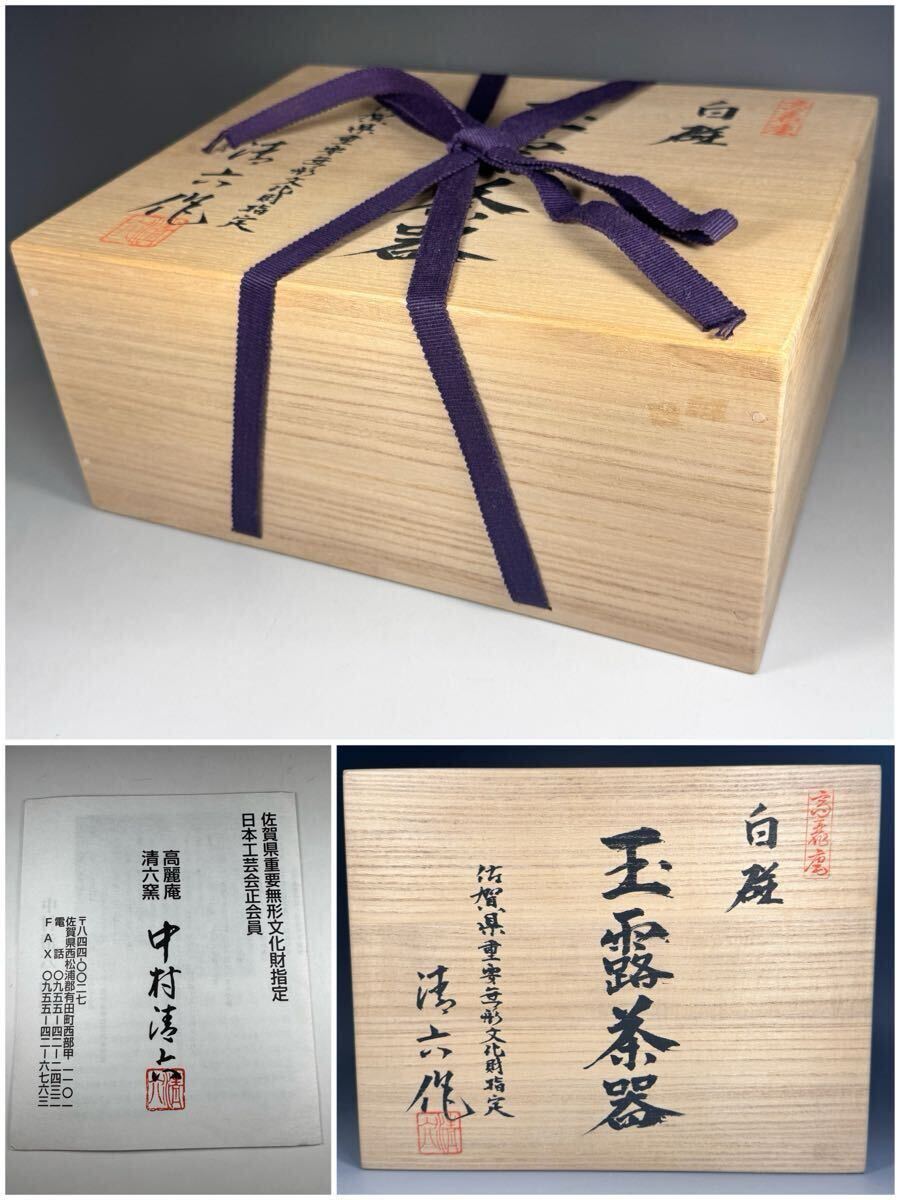 白群
清六作
佐賀県重要無形文化財指定
日本工芸会正会員
高麗庵
清六窯
中村清六
清六
〒八四四〇〇二七
佐賀県西松浦郡有田町西部甲一一〇一
電話 〇九五五-四二-二四三二
FAX 〇九五五-四二-六七六三
高麗庵
白群
玉露茶器
佐賀県重要無形文化財指定
清六作
清六